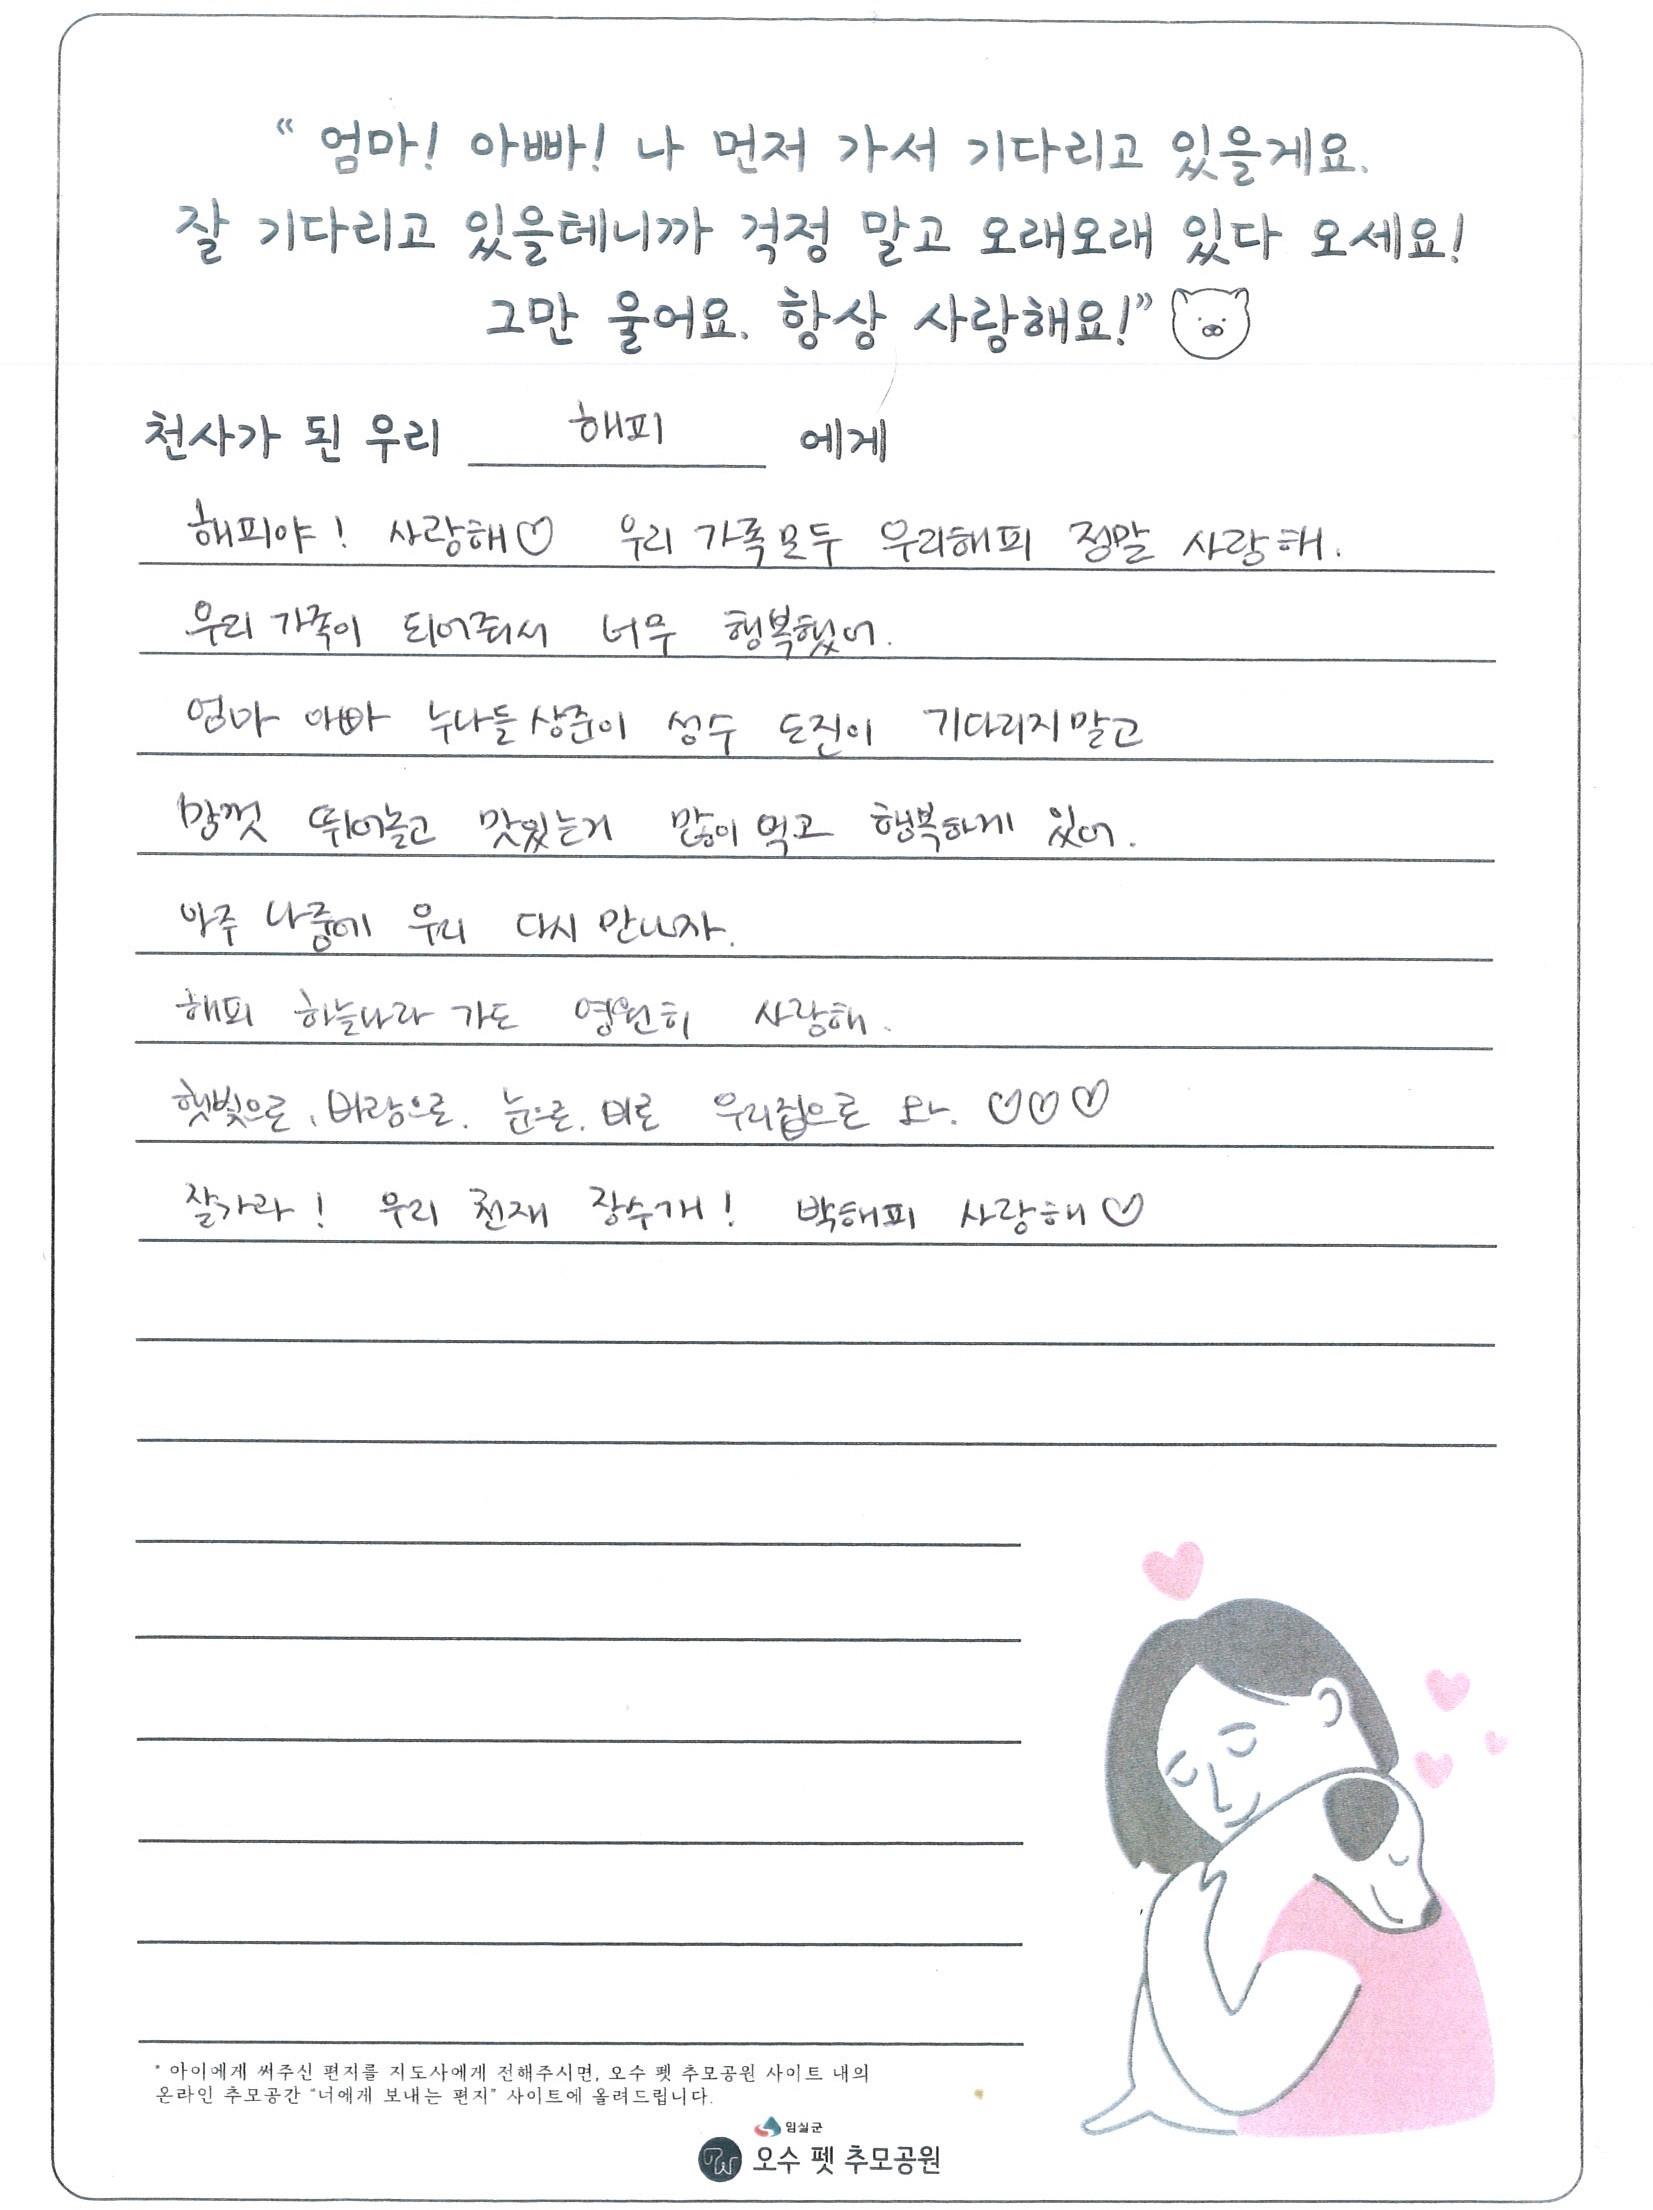 “ 엄마! 아빠! 나 먼저 가서 기다리고 있을게요.
잘 기다리고 있을테니까 걱정 말고 오래오래 있다 오세요!
그만 울어요. 항상 사랑해요!”
천사가 된 우리 해피 에게
해피야! 사랑해♡ 우리 가족모두 우리해피 정말 사랑해.
우리 가족이 되어줘서 너무 행복했어.
엄마 아빠 누나들 상준이 성수 도진이 기다리지말고
맘껏 뛰어놀고 맛있는거 많이 먹고 행복하게 있어.
아주 나중에 우리 다시 만나자.
해피 하늘나라 가도 영원히 사랑해.
햇빛으로, 바람으로. 눈으로. 비로 우리집으로 와. ♡♡♡
잘가라! 우리 천재 장수개! 박해피 사랑해♡
* 아이에게 써주신 편지를 지도사에게 전해주시면, 오수 펫 추모공원 사이트 내의
온라인 추모공간 “너에게 보내는 편지” 사이트에 올려드립니다.
임실군
오수 펫 추모공원